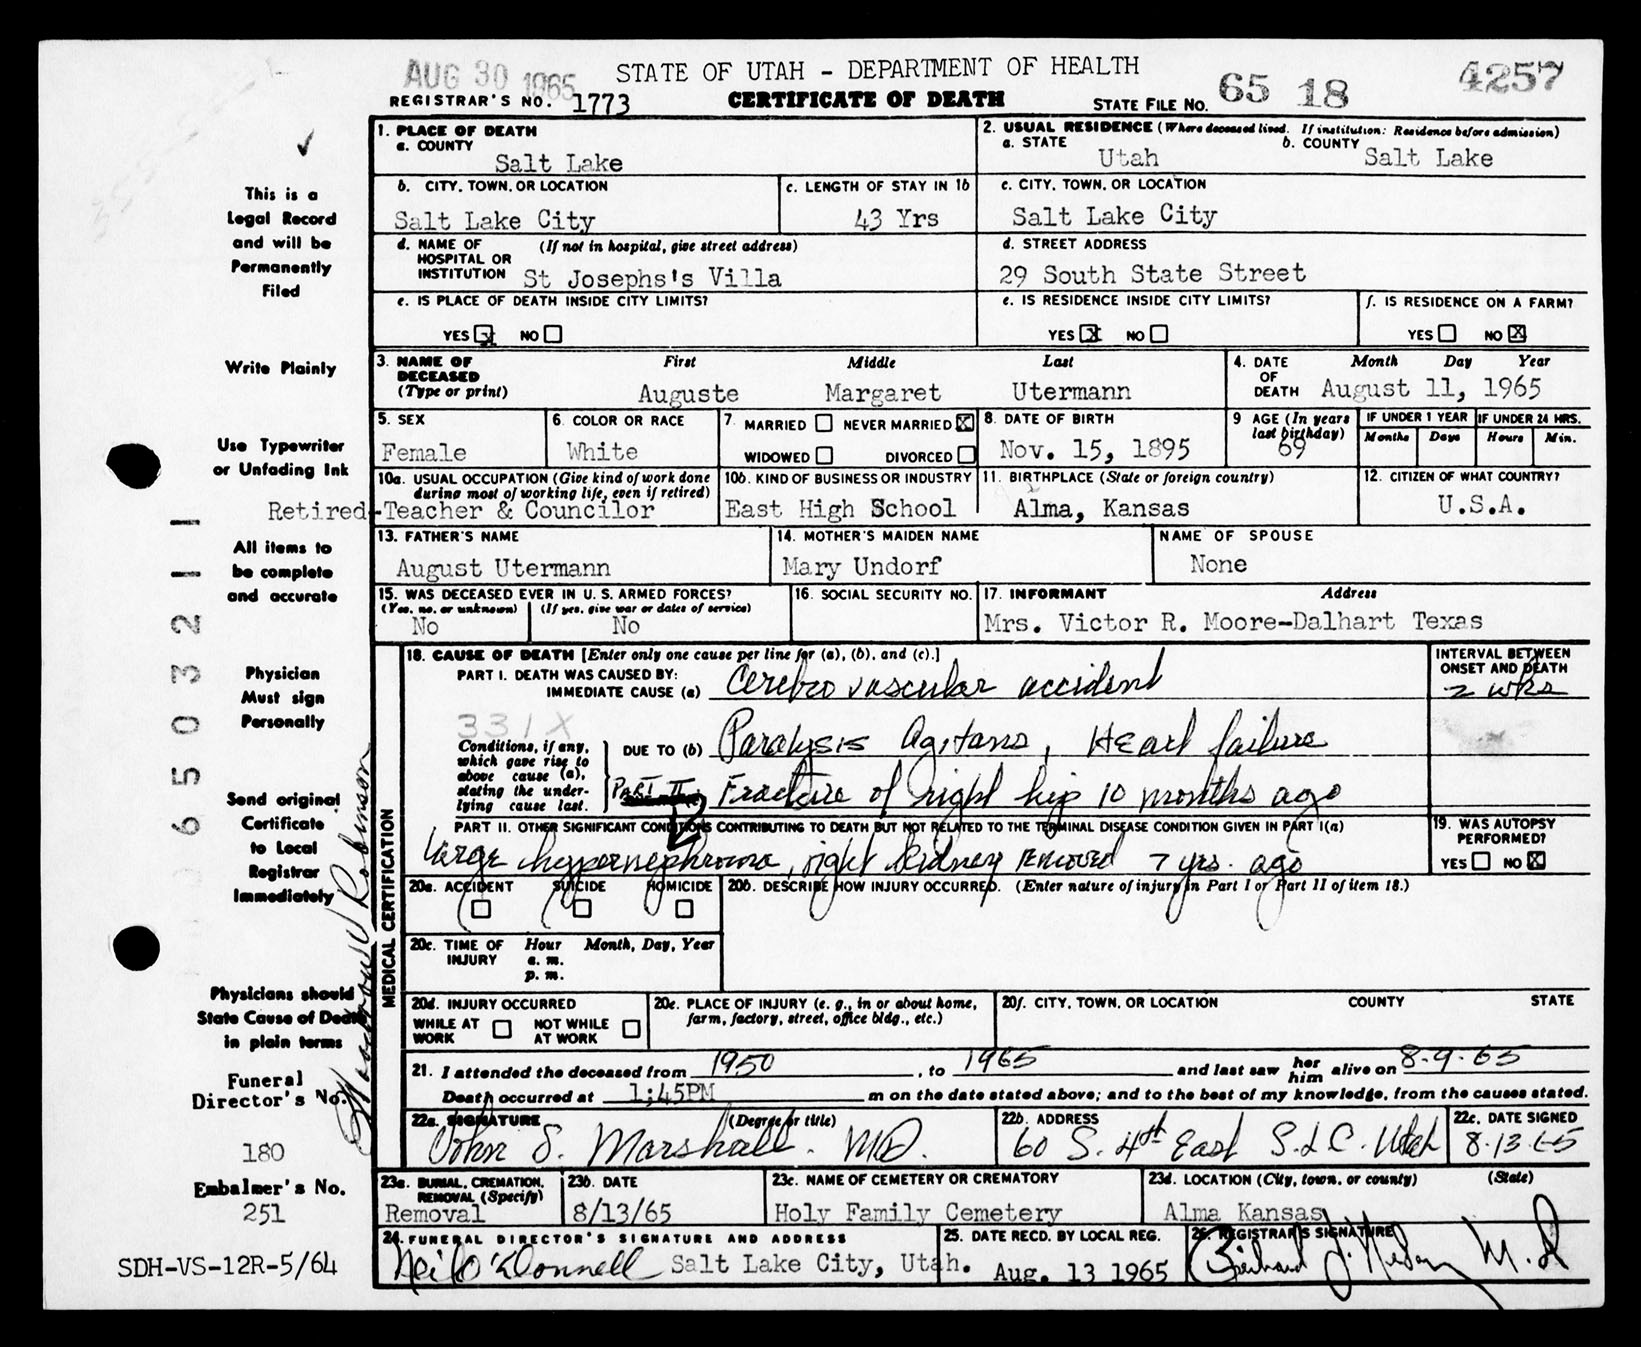 AUG 30 1965
STATE OF UTAH - DEPARTMENT OF HEALTH
REGISTRAR'S NO. 1773
CERTIFICATE OF DEATH
STATE FILE NO. 65 18 4257
1. PLACE OF DEATH
a. COUNTY
Salt Lake
2. USUAL RESIDENCE (Where deceased lived. If institution: Residence before admission)
a. STATE Utah
b. COUNTY Salt Lake
b. CITY, TOWN, OR LOCATION
Salt Lake City
c. LENGTH OF STAY IN 1b
43 Yrs
c. CITY, TOWN, OR LOCATION
Salt Lake City
d. NAME OF (If not in hospital, give street address)
HOSPITAL OR
INSTITUTION St Josephs's Villa
d. STREET ADDRESS
29 South State Street
e. IS PLACE OF DEATH INSIDE CITY LIMITS?
YES X NO
e. IS RESIDENCE INSIDE CITY LIMITS?
YES X NO
f. IS RESIDENCE ON A FARM?
YES NO X
3. NAME OF First Middle Last
DECEASED
(Type or print) Auguste Margaret Utermann
4. DATE Month Day Year
OF
DEATH August 11, 1965
5. SEX
Female
6. COLOR OR RACE
White
7. MARRIED NEVER MARRIED X
WIDOWED DIVORCED
8. DATE OF BIRTH
Nov. 15, 1895
9 AGE (In years
last birthday)
69
IF UNDER 1 YEAR IF UNDER 24 HRS.
Months Days Hours Min.
10a. USUAL OCCUPATION (Give kind of work done
during most of working life, even if retired)
Retired-Teacher & Councilor
10b. KIND OF BUSINESS OR INDUSTRY
East High School
11. BIRTHPLACE (State or foreign country)
Alma, Kansas
12. CITIZEN OF WHAT COUNTRY?
U.S.A.
13. FATHER'S NAME
August Utermann
14. MOTHER'S MAIDEN NAME
Mary Undorf
NAME OF SPOUSE
None
15. WAS DECEASED EVER IN U. S. ARMED FORCES?
(Yes, no, or unknown) (If yes, give war or dates of service)
No No
16. SOCIAL SECURITY NO.
17. INFORMANT Address
Mrs. Victor R. Moore-Dalhart Texas
18. CAUSE OF DEATH [Enter only one cause per line for (a), (b), and (c).]
PART I. DEATH WAS CAUSED BY:
IMMEDIATE CAUSE (a) Cerebro vascular accident
INTERVAL BETWEEN
ONSET AND DEATH
2 wks
331X
Conditions, if any,
which gave rise to
above cause (a),
stating the under-
lying cause last.
DUE TO (b) Paralysis Agitans, Heart failure
PART II Fracture of right hip 10 months ago
PART II. OTHER SIGNIFICANT CONDITIONS CONTRIBUTING TO DEATH BUT NOT RELATED TO THE TERMINAL DISEASE CONDITION GIVEN IN PART I(a)
Large hypernephroma, right kidney removed 7 yrs. ago
19. WAS AUTOPSY
PERFORMED?
YES NO X
20a. ACCIDENT SUICIDE HOMICIDE
20b. DESCRIBE HOW INJURY OCCURRED. (Enter nature of injury in Part I or Part II of item 18.)
20c. TIME OF Hour Month, Day, Year
INJURY a. m.
p. m.
20d. INJURY OCCURRED
WHILE AT NOT WHILE
WORK AT WORK
20e. PLACE OF INJURY (e. g., in or about home,
farm, factory, street, office bldg., etc.)
20f. CITY, TOWN, OR LOCATION COUNTY STATE
21. I attended the deceased from 1950, to 1965 and last saw her him alive on 8-9-65
Death occurred at 1;45PM m on the date stated above; and to the best of my knowledge, from the causes stated.
22a. SIGNATURE (Degree or title)
John S. Marshall. MD.
22b. ADDRESS
60 S. 4th East S.L C. Utah
22c. DATE SIGNED
8-13-65
23a. BURIAL, CREMATION,
REMOVAL (Specify)
Removal
23b. DATE
8/13/65
23c. NAME OF CEMETERY OR CREMATORY
Holy Family Cemetery
23d. LOCATION (City, town, or county) (State)
Alma Kansas
24. FUNERAL DIRECTOR'S SIGNATURE AND ADDRESS
Neil O'Donnell Salt Lake City, Utah.
25. DATE RECD. BY LOCAL REG.
Aug. 13 1965
26. REGISTRAR'S SIGNATURE
M.D
MEDICAL CERTIFICATION
This is a
Legal Record
and will be
Permanently
Filed
Write Plainly
Use Typewriter
or Unfading Ink
All items to
be complete
and accurate
Physician
Must sign
Personally
Send original
Certificate
to Local
Registrar
Immediately
Physicians should
State Cause of Death
in plain terms
Funeral
Director's No.
180
Embalmer's No.
251
SDH-VS-12R-5/64
Woodrow W Robinson